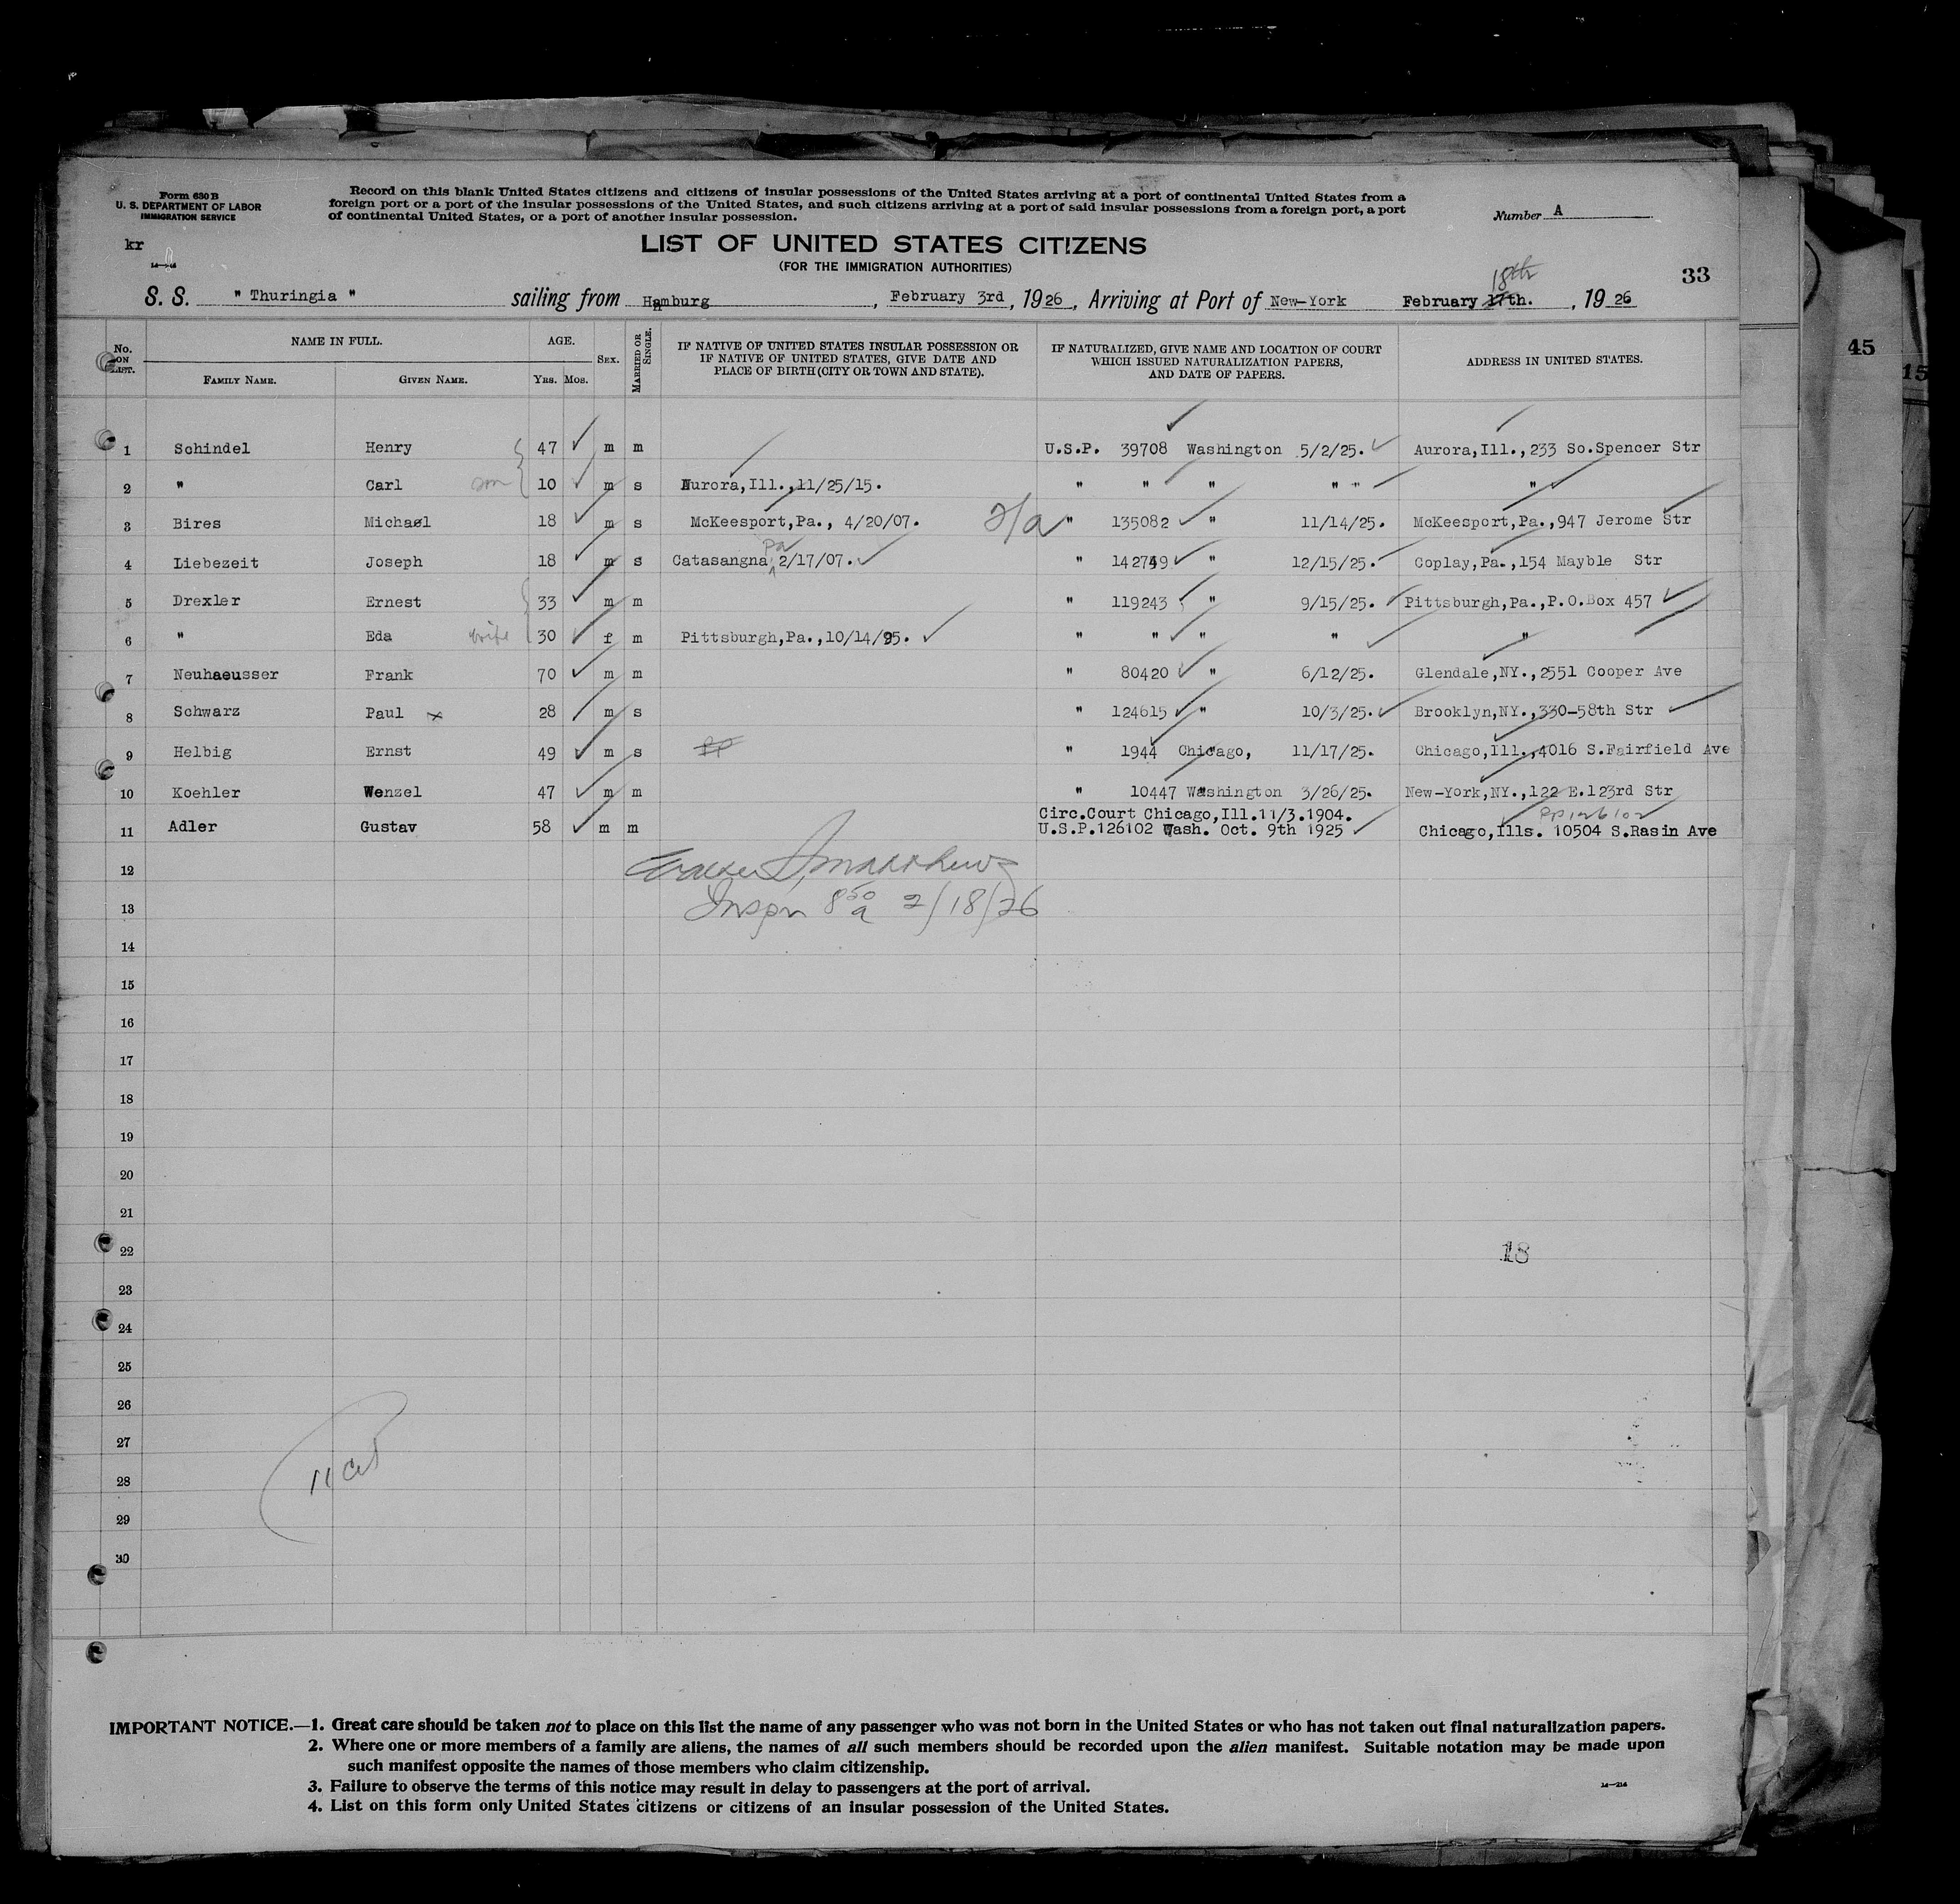 Form 630 B
U. S. DEPARTMENT OF LABOR
IMMIGRATION SERVICE
Record on this blank United States citizens and citizens of insular possessions of the United States arriving at a port of continental United States from a
foreign port or a port of the insular possessions of the United States, and such citizens arriving at a port of said insular possessions from a foreign port, a port
of continental United States, or a port of another insular possession.
Number A
kr
LIST OF UNITED STATES CITIZENS
(FOR THE IMMIGRATION AUTHORITIES)
33
18th
S. S. " Thuringia " sailing from Hamburg, February 3rd, 1926, Arriving at Port of New-York February 17th., 1926
No. ON LIST. NAME IN FULL. AGE. SEX. MARRIED OR SINGLE. IF NATIVE OF UNITED STATES INSULAR POSSESSION OR IF NATIVE OF UNITED STATES, GIVE DATE AND PLACE OF BIRTH (CITY OR TOWN AND STATE). IF NATURALIZED, GIVE NAME AND LOCATION OF COURT WHICH ISSUED NATURALIZATION PAPERS, AND DATE OF PAPERS. ADDRESS IN UNITED STATES.
FAMILY NAME. GIVEN NAME. YRS. MOS.
1 Schindel Henry 47 m m U.S.P. 39708 Washington 5/2/25. Aurora,Ill.,233 So.Spencer Str
2 " Carl son 10 m s Aurora,Ill.,11/25/15. " " " " " "
3 Bires Michael 18 m s McKeesport,Pa., 4/20/07. " 135082 " 11/14/25. McKeesport,Pa.,947 Jerome Str
4 Liebezeit Joseph 18 m s Catasangna Pa 2/17/07. " 142749 " 12/15/25. Coplay,Pa.,154 Mayble Str
5 Drexler Ernest 33 m m " 119243 " 9/15/25. Pittsburgh,Pa.,P.O.Box 457
6 " Eda wife 30 f m Pittsburgh,Pa.,10/14/95. " " " " "
7 Neuhaeusser Frank 70 m m " 80420 " 6/12/25. Glendale,NY.,2551 Cooper Ave
8 Schwarz Paul x 28 m s " 124615 " 10/3/25. Brooklyn,NY.,330-58th Str
9 Helbig Ernst 49 m s " 1944 Chicago, 11/17/25. Chicago,Ill.,4016 S.Fairfield Ave
10 Koehler Wenzel 47 m m " 10447 Washington 3/26/25. New-York,NY.,122 E.123rd Str
Circ.Court Chicago,Ill.11/3.1904. PP126102
11 Adler Gustav 58 m m U.S.P.126102 Wash. Oct. 9th 1925 Chicago,Ills. 10504 S.Rasin Ave
12 Matthews
13 Inspr 8 50 a 2/18/26
14
15
16
17
18
19
20
21
22 18
23
24
25
26
27
28
29
30
IMPORTANT NOTICE.—1. Great care should be taken not to place on this list the name of any passenger who was not born in the United States or who has not taken out final naturalization papers.
2. Where one or more members of a family are aliens, the names of all such members should be recorded upon the alien manifest. Suitable notation may be made upon
such manifest opposite the names of those members who claim citizenship.
3. Failure to observe the terms of this notice may result in delay to passengers at the port of arrival.
4. List on this form only United States citizens or citizens of an insular possession of the United States.
14—214
45
15